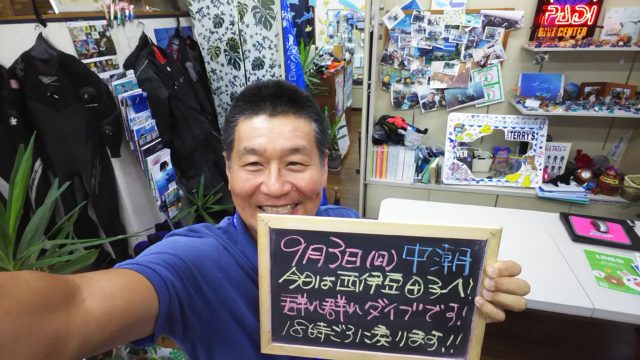 PADI
DIVE CENTER
TERRY'S
LINE@
9月3日(日) 中潮
今日は西伊豆⊕3人!
群れ群れダイブです!
18時ごろに戻ります!!